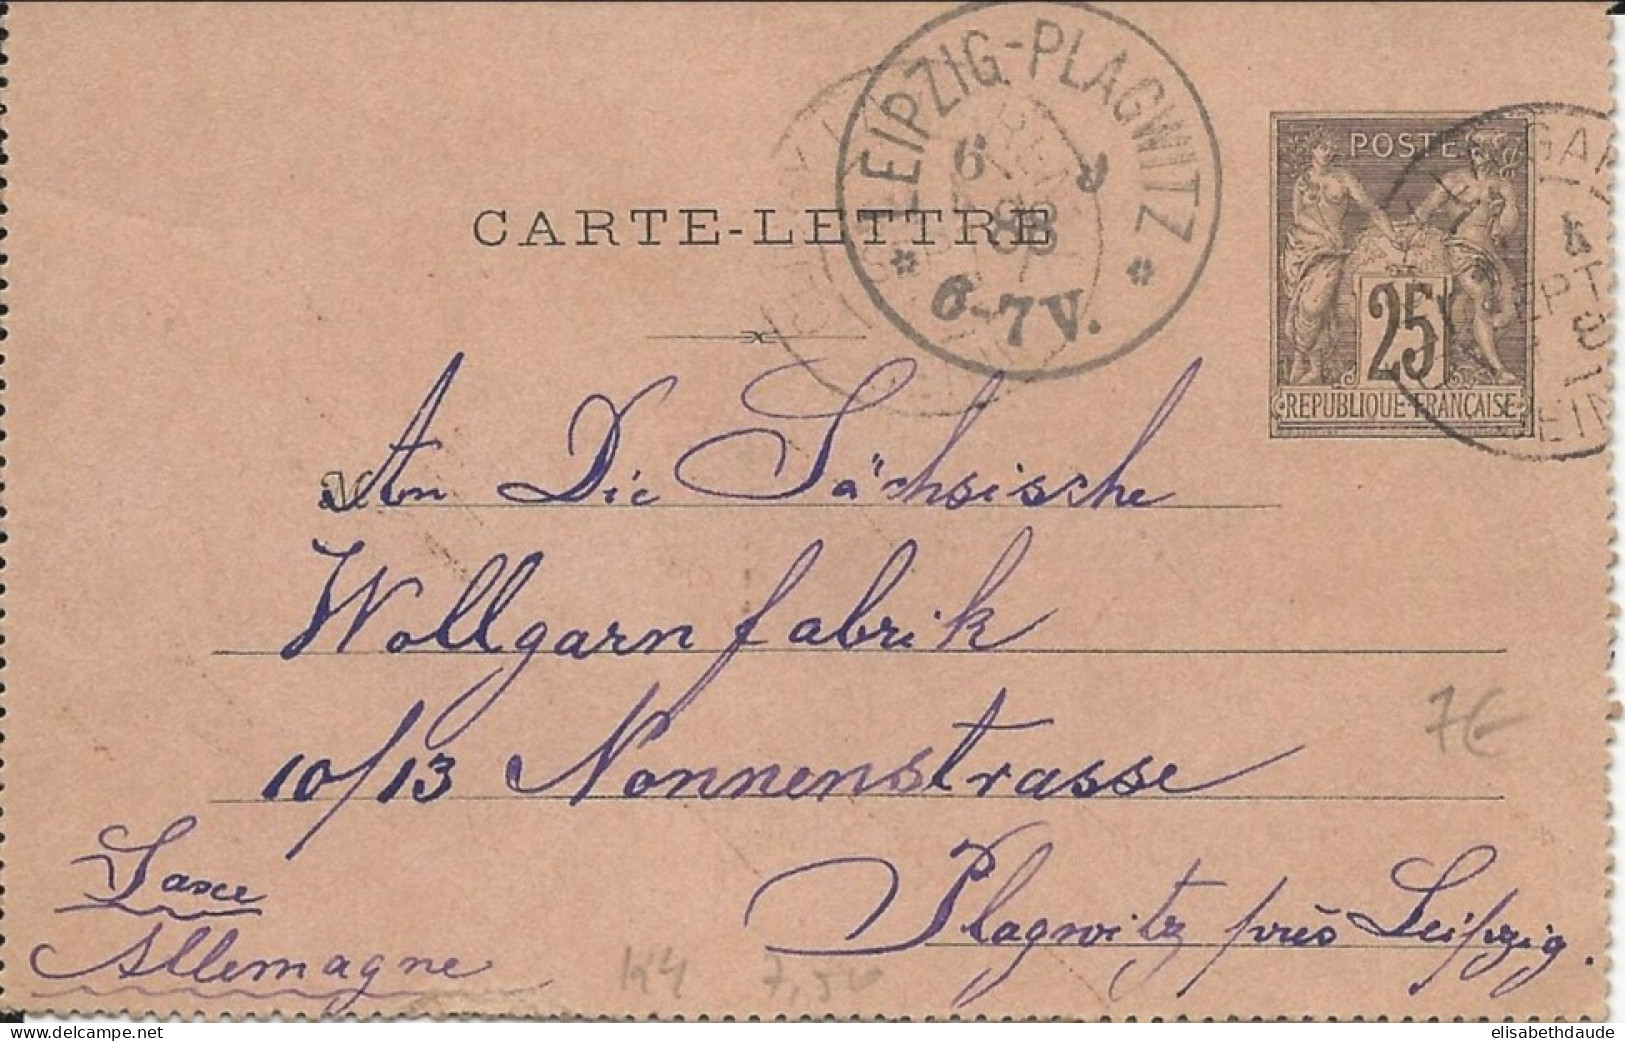 LEIPZIG-PLAGWITZ
6 9
88
6-7V.
POSTE
25
REPUBLIQUE FRANÇAISE
CARTE-LETTRE
An Die Sächsische
Wollgarnfabrik
10/13 Nonnenstrasse
Plagwitz près Leipzig.
Saxe
Allemagne
7€
K4 7,50
www.delcampe.net
elisabethdaude